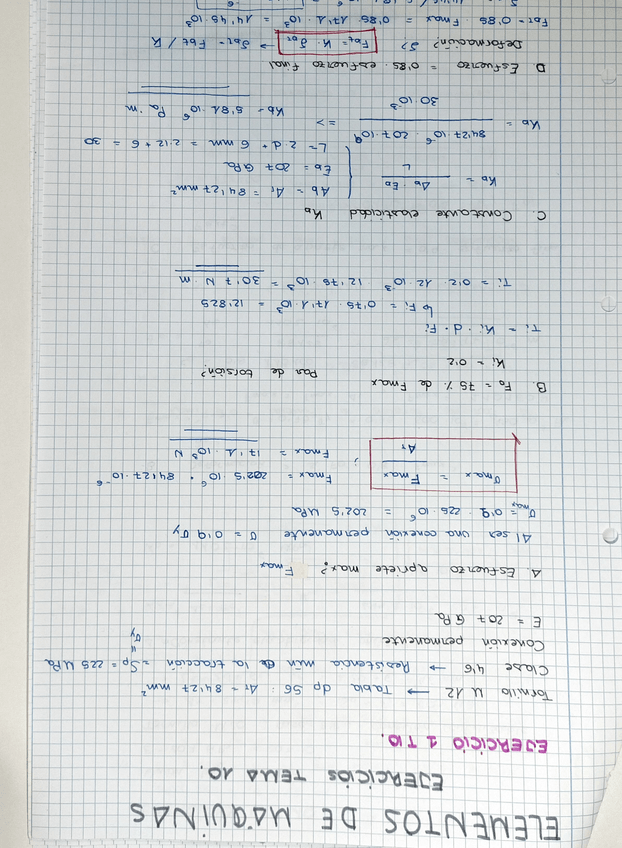 ELEMENTOS DE MÁQUINAS
EJERCICIOS TEMA 10.
EJERCICIO 1 T10.
Tornillo M 12 → Tabla dp 56 : Ar = 84'27 mm²
Clase 4'6 → Resistencia min a la tracción = Sp = 225 MPa
σy
Conexión permanente
E = 207 GPa
A. Esfuerzo apriete max? Fmax
Al ser una conexión permanente σ = 0'9 σy
σmax = 0'9 · 225 · 10⁶ = 202'5 MPa
σmax = Fmax / Ar ; Fmax = 202'5 · 10⁶ · 84'27 · 10⁻⁶
Fmax = 17'1 · 10³ N
B. Fo = 75 % de Fmax Par de torsión?
Ki = 0'2
Ti = Ki · d · Fi
↳ Fi = 0'75 · 17'1 · 10³ = 12'825
Ti = 0'2 · 12 · 10⁻³ · 12'76 · 10³ = 30'7 N · m
C. Constante elasticidad Kb
Kb = Ab · Eb / L { Ab = Ar = 84'27 mm²
Eb = 207 GPa
L = 2·d + 6 mm = 2·12 + 6 = 30
Kb = 84'27 · 10⁻⁶ · 207 · 10⁹ / 30 · 10⁻³ => Kb = 5'81 · 10⁶ Pa · m
D. Esfuerzo = 0'85 · esfuerzo final
Deformación? δ? Fbt = K · δbt => δbt = Fbt / K
Fbt = 0'85 · Fmax = 0'85 · 17'1 · 10³ = 14'45 · 10³